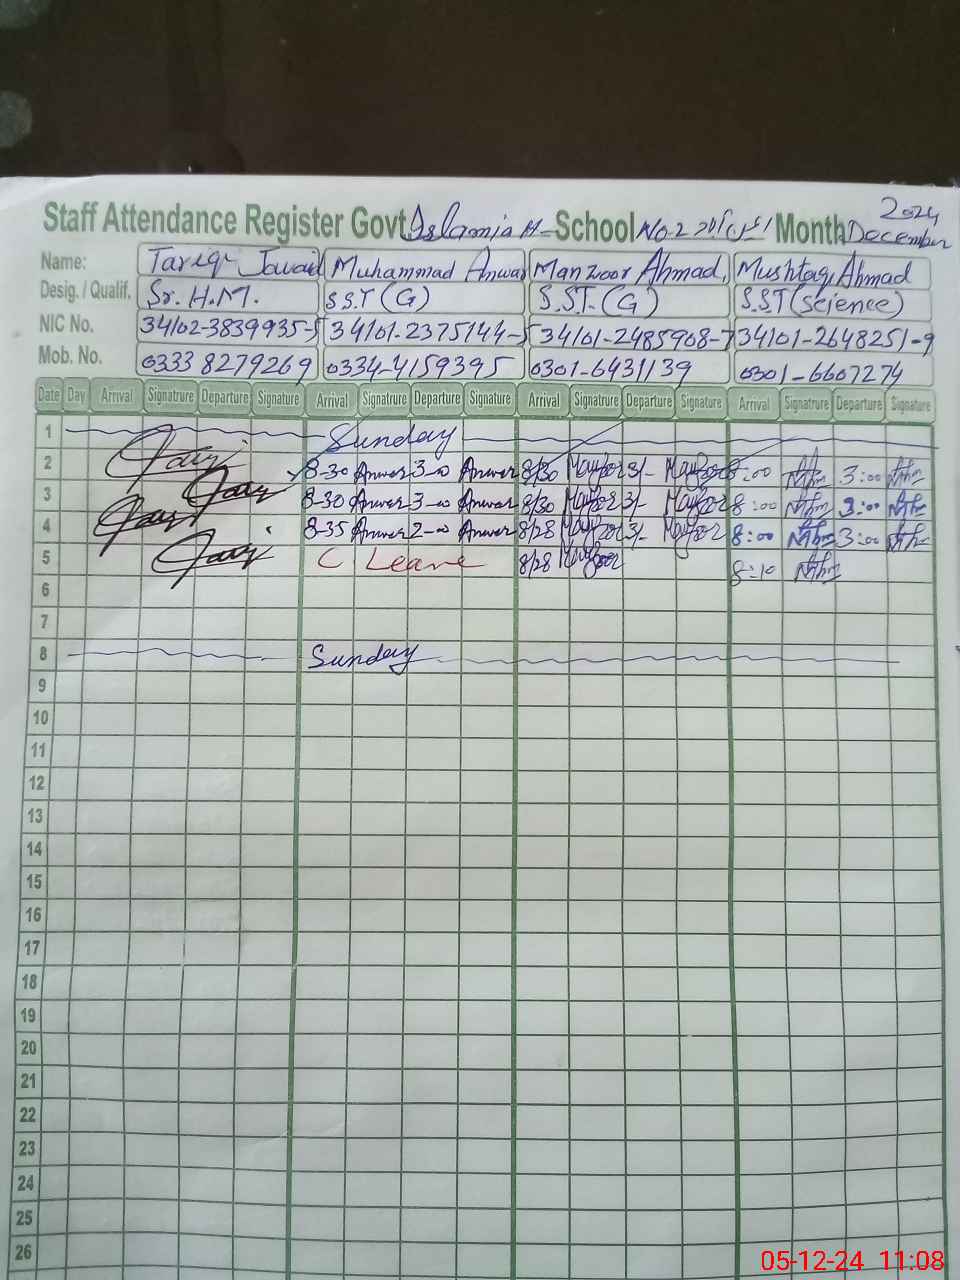 2024
Staff Attendance Register Govt. Islamia H- School No.2 Month December
Name: Tariq Javaid Muhammad Anwar Manzoor Ahmad, Mushtaq Ahmad
Desig. / Qualif. Sr. H.M. S.S.T (G) S.ST.(G) S.S.T (Science)
NIC No. 34102-3839935-5 34101-2375144-5 34101-2485908-7 34101-2648251-9
Mob. No. 0333 8279269 0334-4159395 0301-6431139 0301-6607274
Date Day Arrival Signatrure Departure Signature Arrival Signatrure Departure Signature Arrival Signatrure Departure Signature Arrival Signatrure Departure Signature
1 Sunday
2 8-30 Anwar 3-00 Anwar 8/30 3/- 8:00 3:00
3 8-30 Anwar 3-00 Anwar 8/30 3/- 8:00 3:00
4 8-35 Anwar 2-00 Anwar 8/28 3/- 8:00 3:00
5 C Leave 8/28 8:10
6
7
8 Sunday
9
10
11
12
13
14
15
16
17
18
19
20
21
22
23
24
25
26
05-12-24 11:08